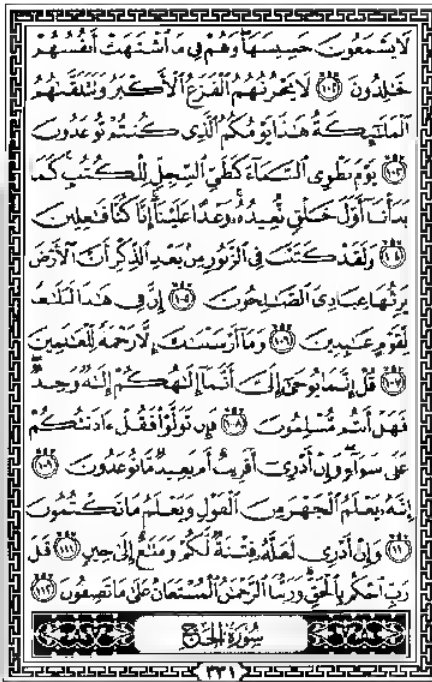 لَا يَسْمَعُونَ حَسِيسَهَا ۖ وَهُمْ فِي مَا ٱشْتَهَتْ أَنفُسُهُمْ
خَٰلِدُونَ ١٠٢ لَا يَحْزُنُهُمُ ٱلْفَزَعُ ٱلْأَكْبَرُ وَتَتَلَقَّىٰهُمُ
ٱلْمَلَٰٓئِكَةُ هَٰذَا يَوْمُكُمُ ٱلَّذِى كُنتُمْ تُوعَدُونَ
١٠٣ يَوْمَ نَطْوِى ٱلسَّمَآءَ كَطَىِّ ٱلسِّجِلِّ لِلْكُتُبِ ۚ كَمَا
بَدَأْنَآ أَوَّلَ خَلْقٍ نُّعِيدُهُۥ ۚ وَعْدًا عَلَيْنَآ ۚ إِنَّا كُنَّا فَٰعِلِينَ
١٠٤ وَلَقَدْ كَتَبْنَا فِى ٱلزَّبُورِ مِنۢ بَعْدِ ٱلذِّكْرِ أَنَّ ٱلْأَرْضَ
يَرِثُهَا عِبَادِىَ ٱلصَّٰلِحُونَ ١٠٥ إِنَّ فِى هَٰذَا لَبَلَٰغًا
لِّقَوْمٍ عَٰبِدِينَ ١٠٦ وَمَآ أَرْسَلْنَٰكَ إِلَّا رَحْمَةً لِّلْعَٰلَمِينَ
١٠٧ قُلْ إِنَّمَا يُوحَىٰٓ إِلَىَّ أَنَّمَآ إِلَٰهُكُمْ إِلَٰهٌ وَٰحِدٌ ۖ
فَهَلْ أَنتُم مُّسْلِمُونَ ١٠٨ فَإِن تَوَلَّوْا۟ فَقُلْ ءَاذَنتُكُمْ
عَلَىٰ سَوَآءٍ ۖ وَإِنْ أَدْرِىٓ أَقَرِيبٌ أَم بَعِيدٌ مَّا تُوعَدُونَ ١٠٩
إِنَّهُۥ يَعْلَمُ ٱلْجَهْرَ مِنَ ٱلْقَوْلِ وَيَعْلَمُ مَا تَكْتُمُونَ
١١٠ وَإِنْ أَدْرِى لَعَلَّهُۥ فِتْنَةٌ لَّكُمْ وَمَتَٰعٌ إِلَىٰ حِينٍ ١١١ قَٰلَ
رَبِّ ٱحْكُم بِٱلْحَقِّ ۗ وَرَبُّنَا ٱلرَّحْمَٰنُ ٱلْمُسْتَعَانُ عَلَىٰ مَا تَصِفُونَ ١١٢
سُورَةُ الحَجّ
٣٣١